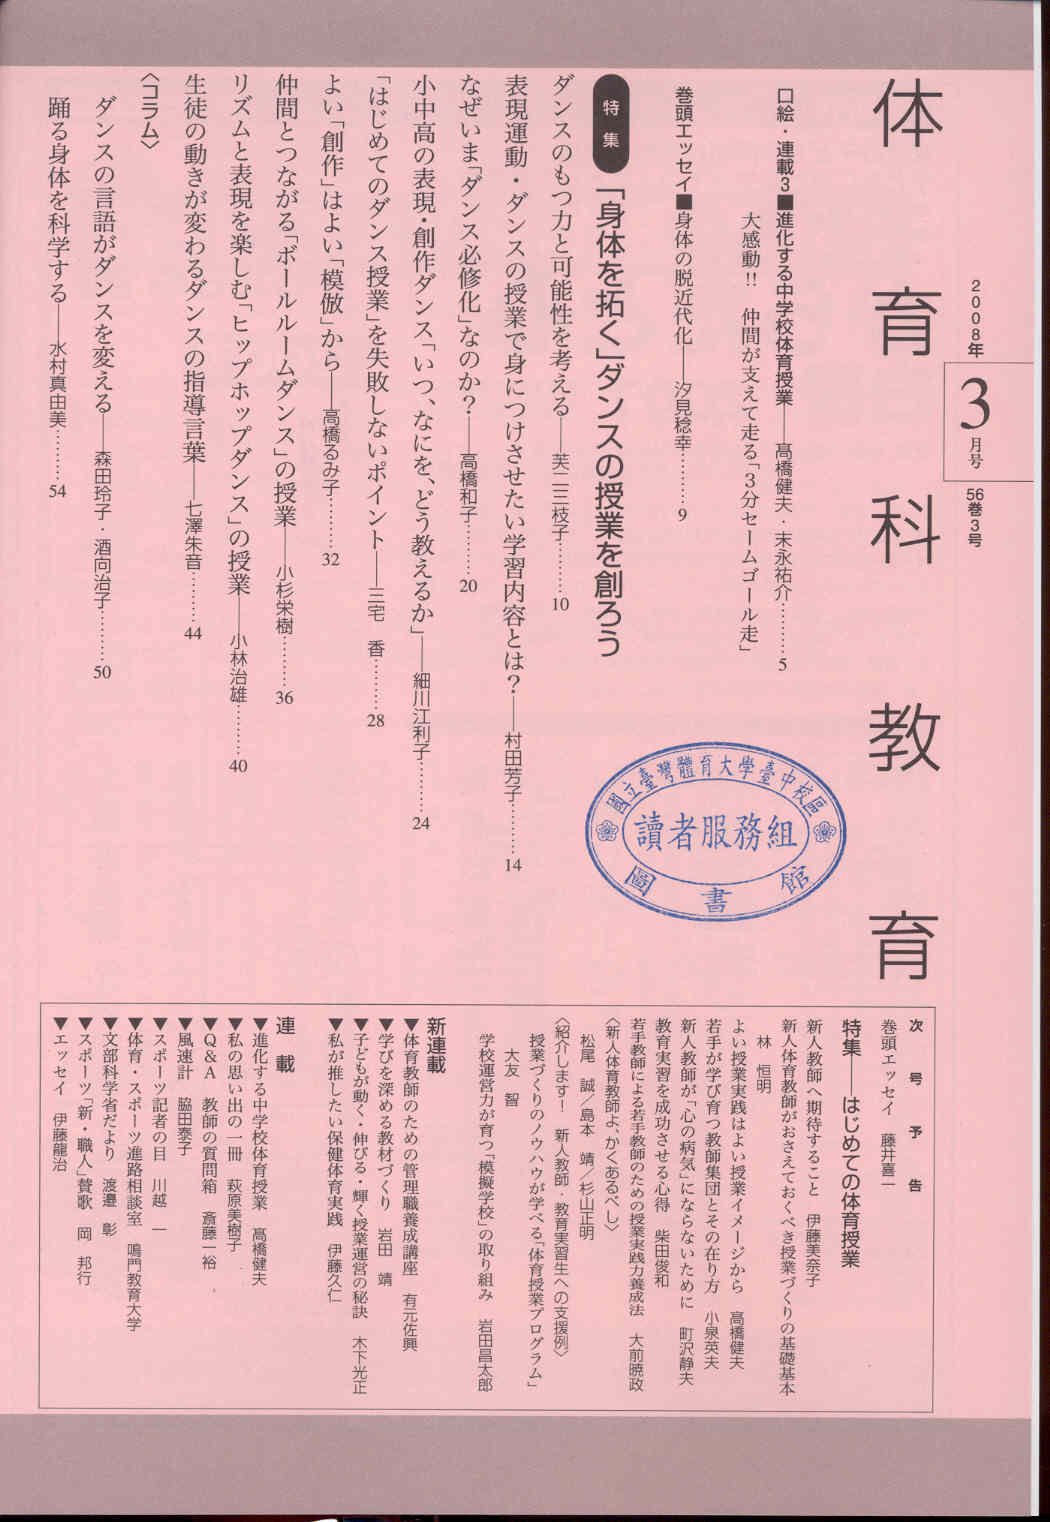 体育科教育
2008年
3月号
56巻3号
口絵・連載3■進化する中学校体育授業——髙橋健夫・末永祐介………5
大感動!!　仲間が支えて走る「3分セームゴール走」
巻頭エッセイ■身体の脱近代化——汐見稔幸………9
特集
「身体を拓く」ダンスの授業を創ろう
ダンスのもつ力と可能性を考える——芙二三枝子………10
表現運動・ダンスの授業で身につけさせたい学習内容とは？——村田芳子………14
なぜいま「ダンス必修化」なのか？——高橋和子………20
小中高の表現・創作ダンス「いつ、なにを、どう教えるか」——細川江利子………24
「はじめてのダンス授業」を失敗しないポイント——三宅　香………28
よい「創作」はよい「模倣」から——高橋るみ子………32
仲間とつながる「ボールルームダンス」の授業——小杉栄樹………36
リズムと表現を楽しむ「ヒップホップダンス」の授業——小林治雄………40
生徒の動きが変わるダンスの指導言葉——七澤朱音………44
〈コラム〉
ダンスの言語がダンスを変える——森田玲子・酒向治子………50
踊る身体を科学する——水村真由美………54
國立臺灣體育大學臺中校區
讀者服務組
圖書館
次号予告
巻頭エッセイ　藤井喜一
特集——はじめての体育授業
新人教師へ期待すること　伊藤美奈子
新人体育教師がおさえておくべき授業づくりの基礎基本
林　恒明
よい授業実践はよい授業イメージから　髙橋健夫
若手が学び育つ教師集団とその在り方　小泉英夫
新人教師が「心の病気」にならないために　町沢静夫
教育実習を成功させる心得　柴田俊和
若手教師による若手教師のための授業実践力養成法　大前暁政
〈新人体育教師よ、かくあるべし〉
松尾　誠／島本　靖／杉山正明
〈紹介します！　新人教師・教育実習生への支援例〉
授業づくりのノウハウが学べる「体育授業プログラム」
大友　智
学校運営力が育つ「模擬学校」の取り組み　岩田昌太郎
新連載
▼体育教師のための管理職養成講座　有元佐興
▼学びを深める教材づくり　岩田　靖
▼子どもが動く・伸びる・輝く授業運営の秘訣　木下光正
▼私が推したい保健体育実践　伊藤久仁
連　載
▼進化する中学校体育授業　髙橋健夫
▼私の思い出の一冊　萩原美樹子
▼Q＆A　教師の質問箱　斎藤一裕
▼風速計　脇田泰子
▼スポーツ記者の目　川越　一
▼体育・スポーツ進路相談室　鳴門教育大学
▼文部科学省だより　渡邉　彰
▼スポーツ「新・職人」賛歌　岡　邦行
▼エッセイ　伊藤龍治